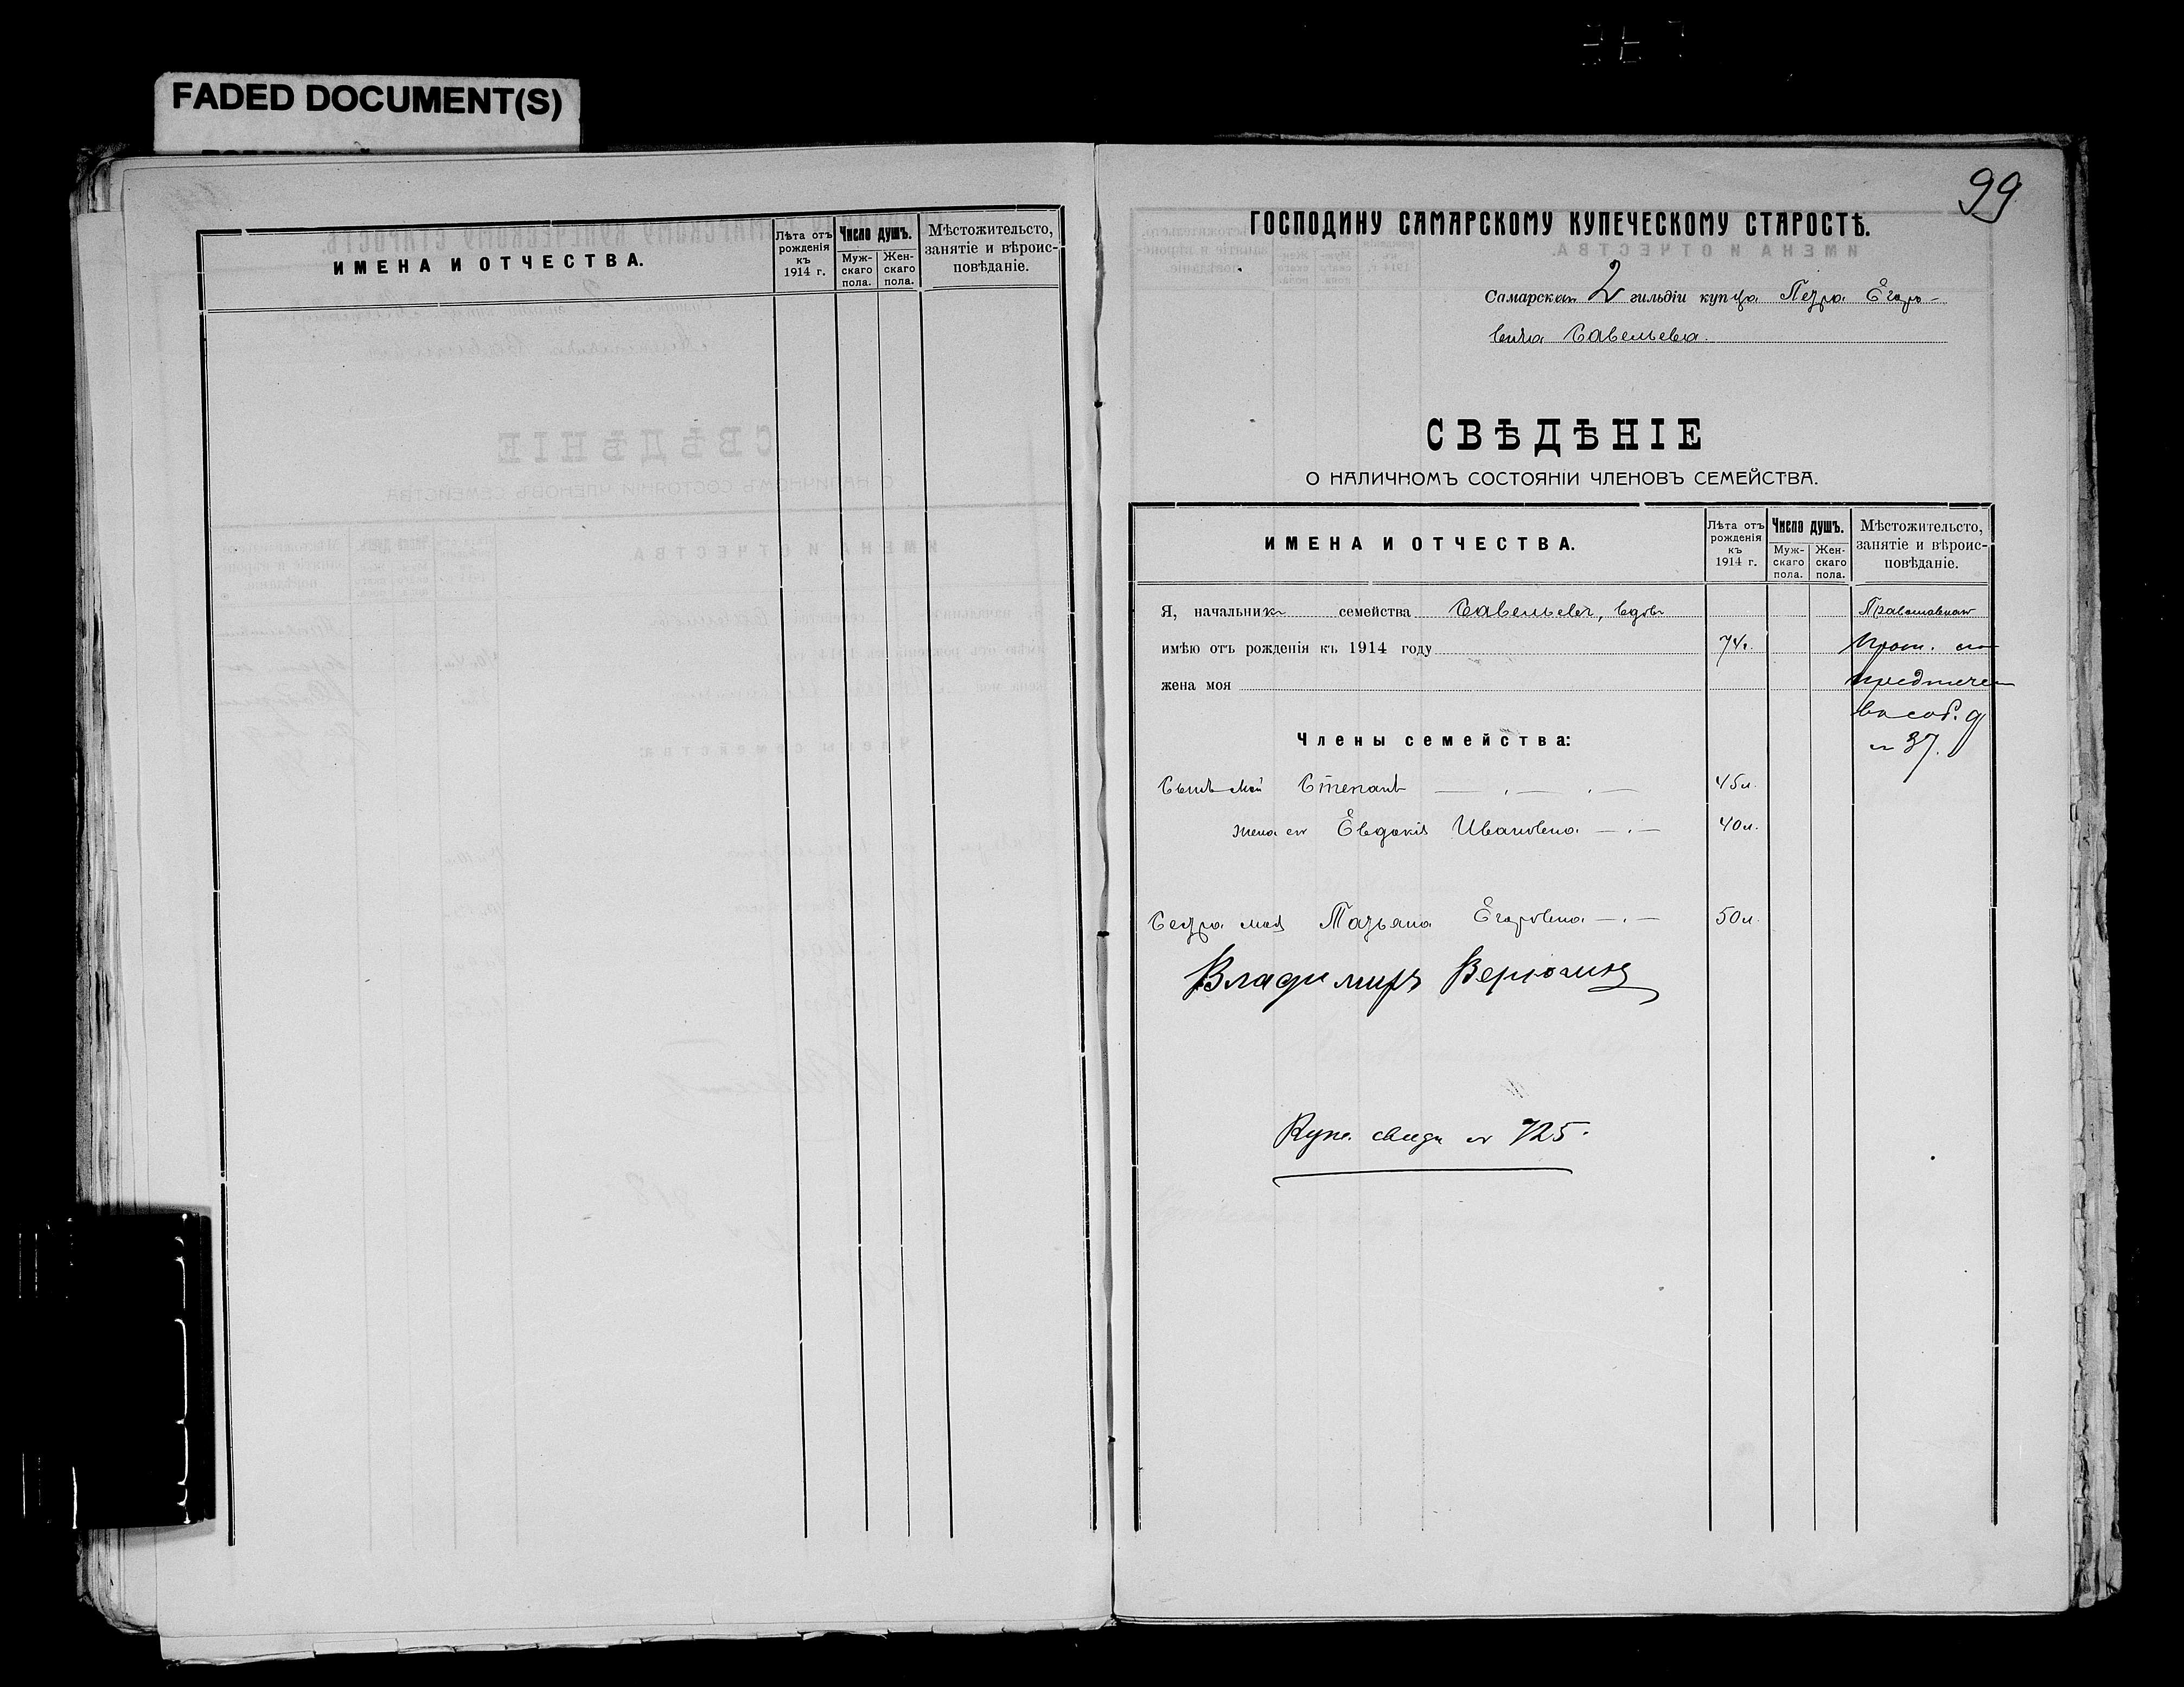 FADED DOCUMENT(S)
ИМЕНА И ОТЧЕСТВА.
Лѣта отъ рожденія къ 1914 г.
Число душъ.
Муж-скаго пола.
Жен-скаго пола.
Мѣстожительсто, занятіе и вѣроис-повѣданіе.
99
ГОСПОДИНУ САМАРСКОМУ КУПЕЧЕСКОМУ СТАРОСТѢ.
Самарскаго 2 гильдіи купца Петра Егоро-
вича Савельева.
СВѢДѢНІЕ
О НАЛИЧНОМЪ СОСТОЯНІИ ЧЛЕНОВЪ СЕМЕЙСТВА.
ИМЕНА И ОТЧЕСТВА.
Лѣта отъ рожденія къ 1914 г.
Число душъ.
Муж-скаго пола.
Жен-скаго пола.
Мѣстожительсто, занятіе и вѣроис-повѣданіе.
Я, начальникъ семейства Савельевъ, вдовъ
имѣю отъ рожденія къ 1914 году 74л.
жена моя
Члены семейства:
Сынъ мой Степанъ 45л.
жена его Евдокія Ивановна 40л.
Сестра моя Татьяна Егоровна 50л.
Православнаго
прож. по
предтечен
въ соб. д
№ 37.
Владимиръ
Куп. свид № 725.